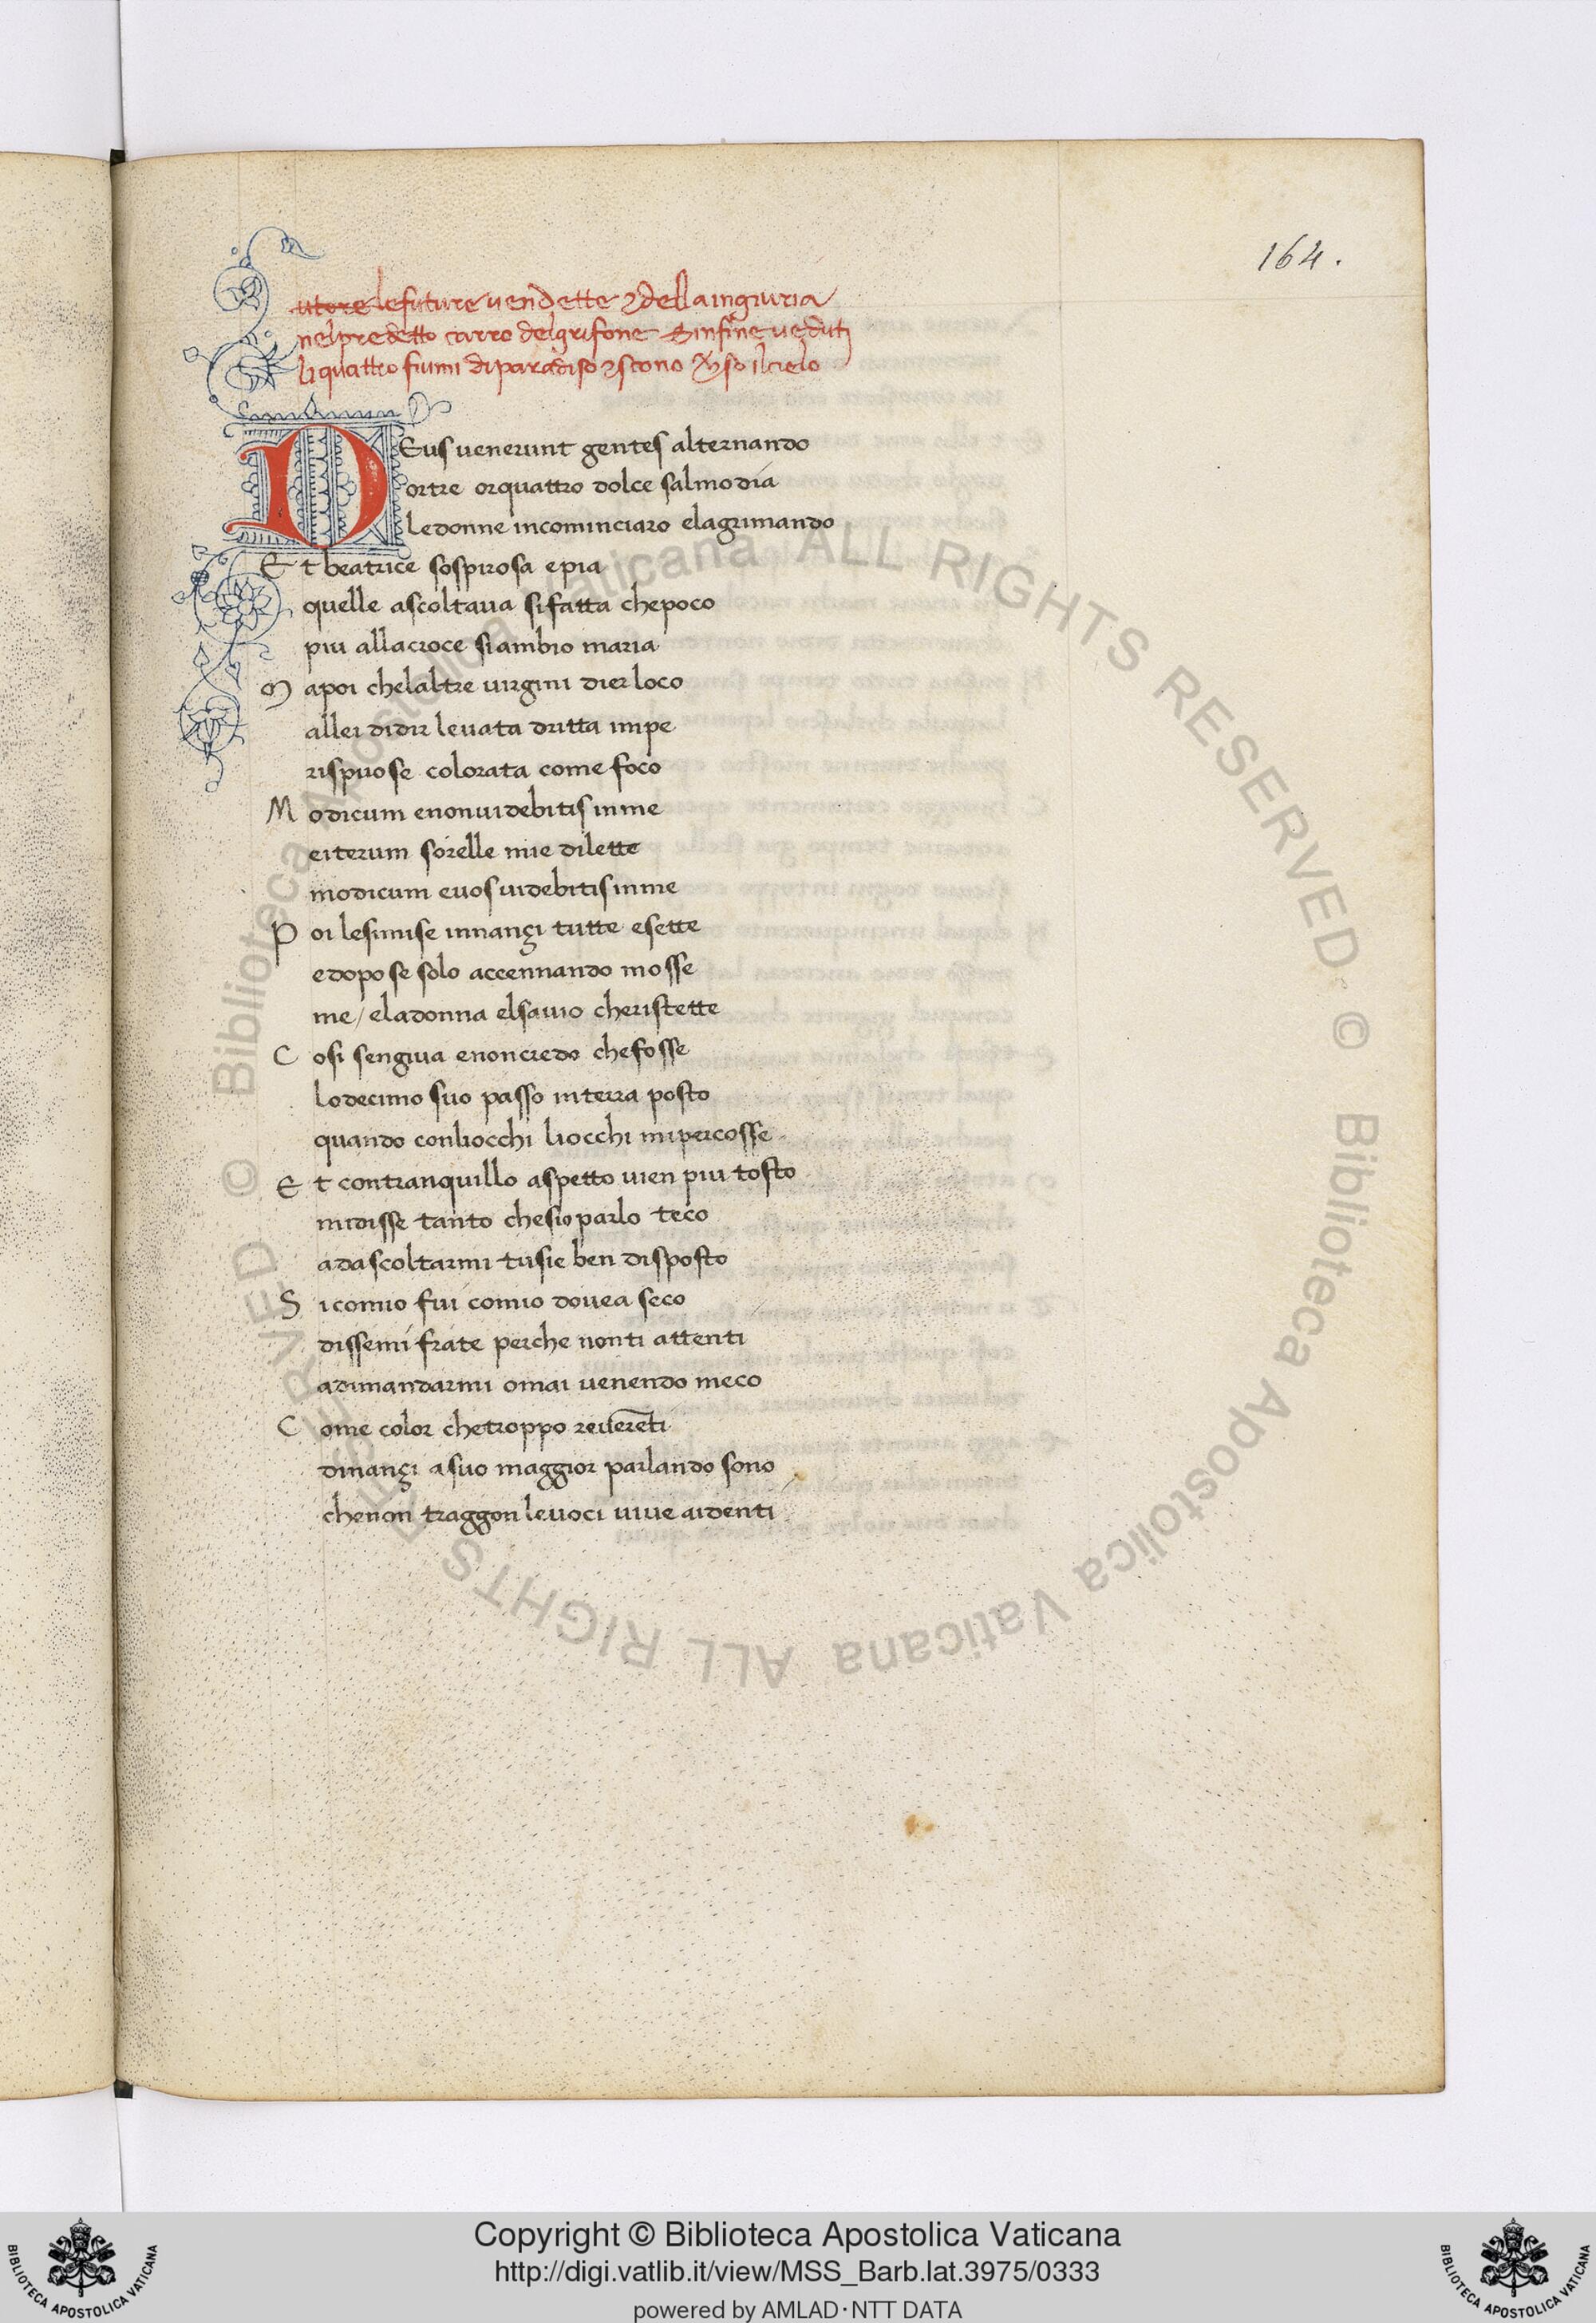 164.
utore lefuture uendette & della ingiuria
nelpredetto carro del grifone & infine ueduti
li quattro fiumi di paradiso & scono so il cielo
DEus uenerunt gentes alternando
ortre orquattro dolce salmodia
ledonne incominciaro elagrimando
Et beatrice sospirosa epia
quelle ascoltaua sifatta chepoco
piu allacroce siambio maria
Mapoi chelaltre uirgini dierloco
allei didir leuata dritta impe
rispuose colorata come foco
Modicum enonuidebitis inme
eiterum sorelle mie dilette
modicum euos uidebitis inme
Poi lesimise innançi tutte esette
edopo se solo accennando mosse
me/ eladonna elsauio cheristette
Cosi sengiua enoncredo chefosse
lodecimo suo passo interra posto
quando conliocchi liocchi mipercosse
Et contranquillo aspetto uien piu tosto
midisse tanto chesio parlo teco
adascoltarmi tusie ben disposto
Sicomio fui comio douea seco
dissemi frate perche nonti attenti
adimandarmi omai uenendo meco
Come color chetroppo reuereti
dinançi asuo maggior parlando sono
chenon traggon leuoci uiue aidenti
© Biblioteca Apostolica Vaticana ALL RIGHTS RESERVED © Biblioteca Apostolica Vaticana ALL RIGHTS RESERVED
BIBLIOTECA APOSTOLICA VATICANA
Copyright © Biblioteca Apostolica Vaticana
http://digi.vatlib.it/view/MSS_Barb.lat.3975/0333
powered by AMLAD·NTT DATA
BIBLIOTECA APOSTOLICA VATICANA